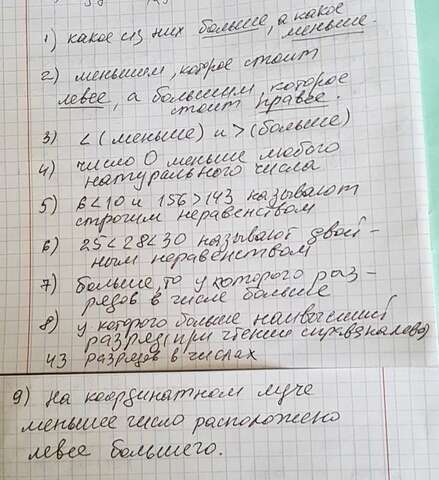 1) какое из них больше, а какое
меньше.
2) меньшим, которое стоит
левее, а большим, которое
стоит правее.
3) < (меньше) и > (больше)
4) число 0 меньше любого
натурального числа
5) 6<10 и 156>143 называют
строгим неравенством
6) 25<28<30 называют двой-
ным неравенством
7) больше, то у которого раз-
рядов в числе больше
8) у которого больше наивысший
разряд (при чтении справа налево)
43 разрядов в числах
9) На координатном луче
меньшее число расположено
левее большего.